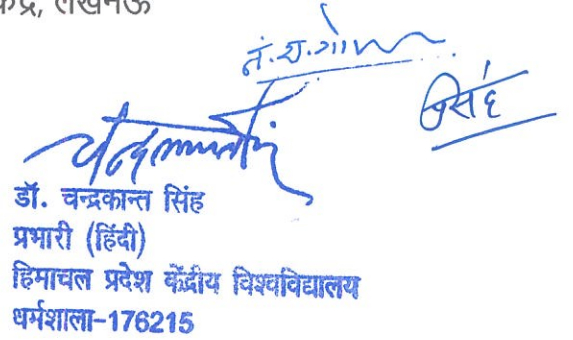 केंद्र, लखनऊ
डॉ. चन्द्रकान्त सिंह
प्रभारी (हिंदी)
हिमाचल प्रदेश केंद्रीय विश्वविद्यालय
धर्मशाला-176215